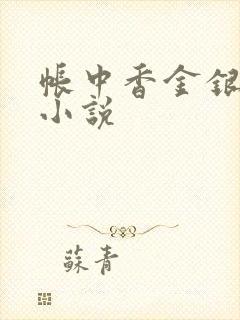 帳中香金銀
小說
蘇青